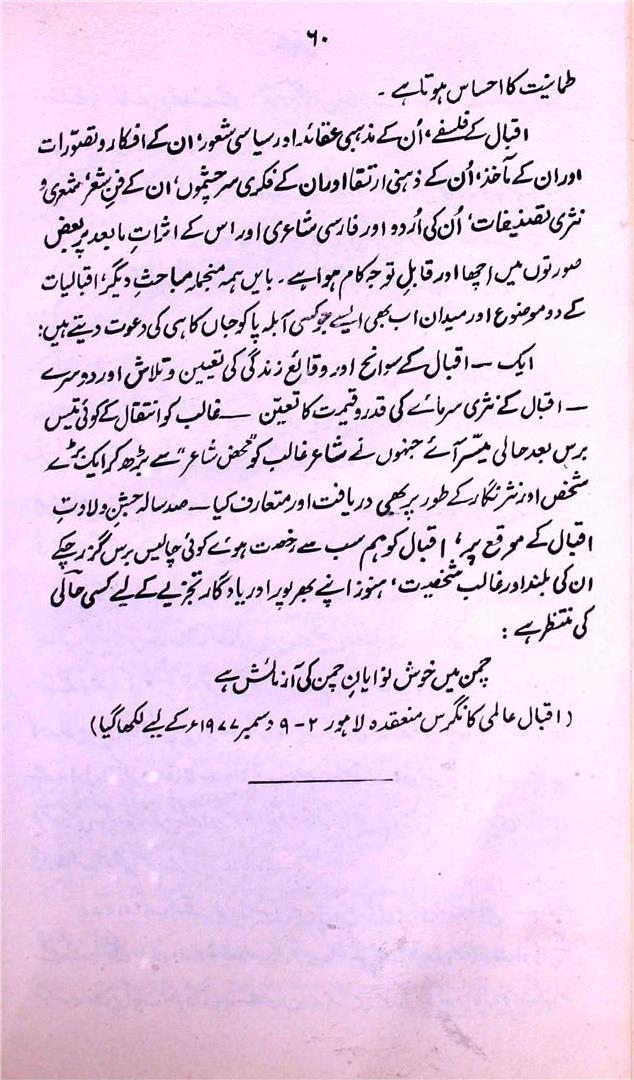 ۶۰
طمانیت کا احساس ہوتا ہے ۔
اقبال کے فلسفے، اُن کے مذہبی عقائد اور سیاسی شعور، ان کے افکار و تصوّرات
اور ان کے مآخذ، اُن کے ذہنی ارتقا اور ان کے فکری سرچشموں، ان کے فنِ شعر، شعری و
نثری تصنیفات، اُن کی اُردو اور فارسی شاعری اور اس کے اثراتِ مابعد پر بعض
صورتوں میں اچھا اور قابلِ توجہ کام ہوا ہے ۔ بایں ہمہ منجملہ مباحثِ دیگر، اقبالیات
کے دو موضوع اور میدان اب بھی ایسے جو کسی آبلہ پا کو جاں کاہی کی دعوت دیتے ہیں:
ایک — اقبال کے سوانح اور وقائع زندگی کی تعیین و تلاش اور دوسرے
— اقبال کے نثری سرمائے کی قدر و قیمت کا تعیّن — غالب کو انتقال کے کوئی تیس
برس بعد حالی میسّر آئے جنہوں نے شاعر غالب کو "محض شاعر" سے بڑھ کر ایک بڑے
شخص اور نثر نگار کے طور پر بھی دریافت اور متعارف کیا — صد سالہ جشنِ ولادتِ
اقبال کے موقع پر، اقبال کو ہم سب سے رخصت ہوئے کوئی چالیس برس گزر چکے
ان کی بلند اور غالب شخصیت، ہنوز اپنے بھرپور اور یادگار تجزیے کے لیے کسی حالی
کی منتظر ہے :
چمن میں خوش نوایانِ چمن کی آزمائش ہے
(اقبال عالمی کانگرس منعقدہ لاہور ۲ - ۹ دسمبر ۱۹۷۷ء کے لیے لکھا گیا)